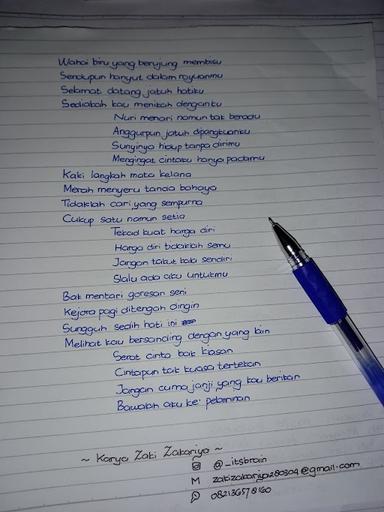 Wahai biru yang berujung membisu
Sendupun hanyut dalam rayuanmu
Selamat datang jatuh hatiku
Sediakah kau menikah denganku
Nuri menari namun tak beradu
Anggurpun jatuh dipangkuanku
Sunyinya hidup tanpa dirimu
Mengingat cintaku hanya padamu
Kaki langkah mata kelana
Merah menyeru tanda bahaya
Tidaklah cari yang sempurna
Cukup satu namun setia
Tekad kuat harga diri
Harga diri tidaklah semu
Jangan takut kala sendiri
Slalu ada aku untukmu
Bak mentari goresan seni
Kejora pagi ditengah dingin
Sungguh sedih hati ini
Melihat kau bersanding dengan yang lain
Serat cinta bak kiasan
Cintapun tak kuasa tertekan
Jangan cuma janji yang kau berikan
Bawalah aku ke pelaminan
~ Karya Zaki Zakariya ~
@_itsbrain
M zakizakariya280304@gmail.com
082136578160